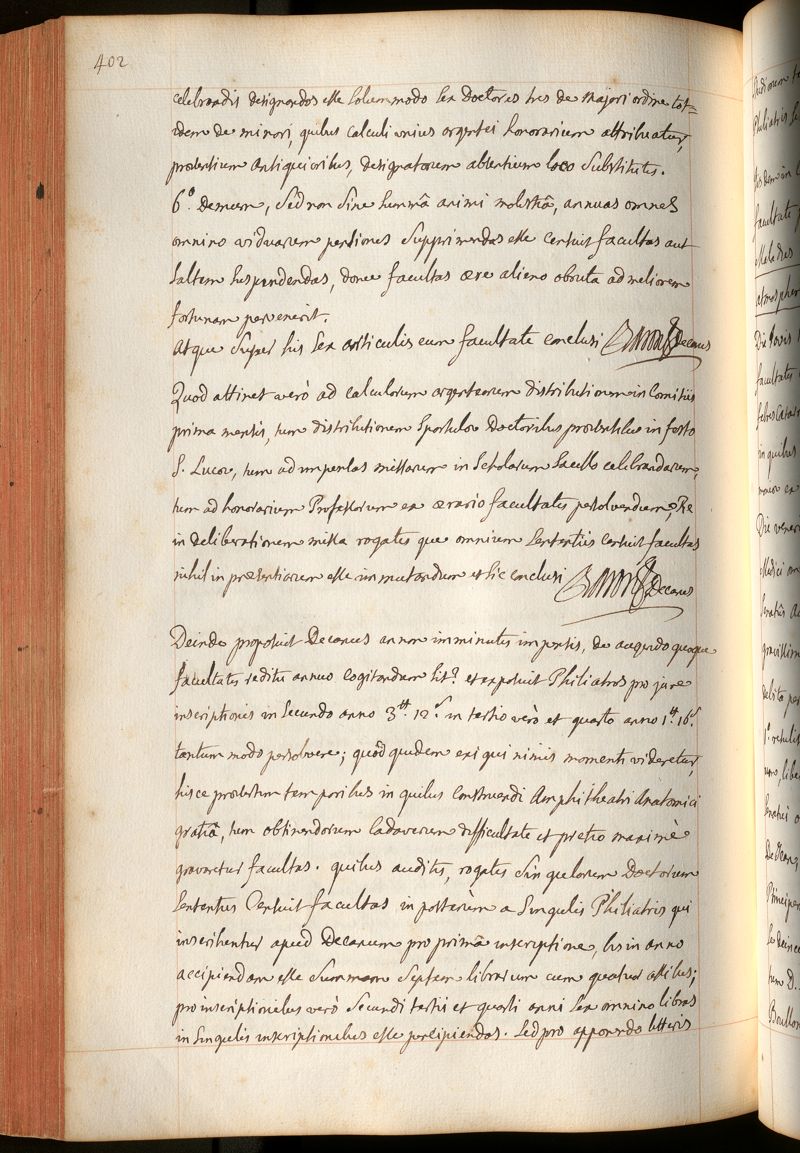 402
celebrandis designandos esse solummodo sex Doctores tres de majori ordine tot=
idem de minori, quibus calculi unius argentei honorarium attribuatur,
præsentium antiquioribus, designatorum absentium loco substitutis.
6.º Demum, sed non sine summâ animi molestiâ, annuas omnes
omnino viduarum pensiones supprimendas esse censuit facultas aut
saltem suspendendas, donec facultas ære alieno obruta ad meliorem
fortunam pervenerit.
atque super his sex articulis cum facultate conclusi Decanus
Quod attinet verò ad calculorum argenteorum distributionem in Comitiis
prima mensis, tum distributionem sportulæ Doctoribus præsentibus in festo
S. Lucæ, tum ad impensas missarum in Scholarum Sacello celebrandarum,
tum ad honorarium Professorum ex ærario facultatis persolvendum, Re
in deliberationem missa rogatis que omnium sententiis censuit facultas
nihil in præsentiarum esse immutandum et sic conclusi Decanus
Deinde proposuit Decanus an non imminutis impensis, de augendo quoque
facultatis reditu annuo cogitandum sit? et exposuit Philiatros pro jure
inscriptionis in secundo anno 3.tt 12.s in tertio verò et quarto anno 1.tt 16.s
tantum modo persolvere; quod quidem exigui nimis momenti videretur,
hisce præsertim temporibus in quibus construendi Amphitheatri Anatomici
gratiâ, tum obtinendorum cadaverum difficultate et pretio maximè
gravaretur facultas. quibus auditis, rogatis singulorum Doctorum
sententiis Censuit facultas in posterùm a singulis Philiatris qui
inscribentur apud Decanum pro primâ inscriptione, bis in anno
accipiendam esse summam septem librarum cum quatuor assibus;
pro inscriptionibus verò secundi tertii et quarti anni sex omnino libras
in singulis inscriptionibus esse percipiendas. sed pro apponendo litteris